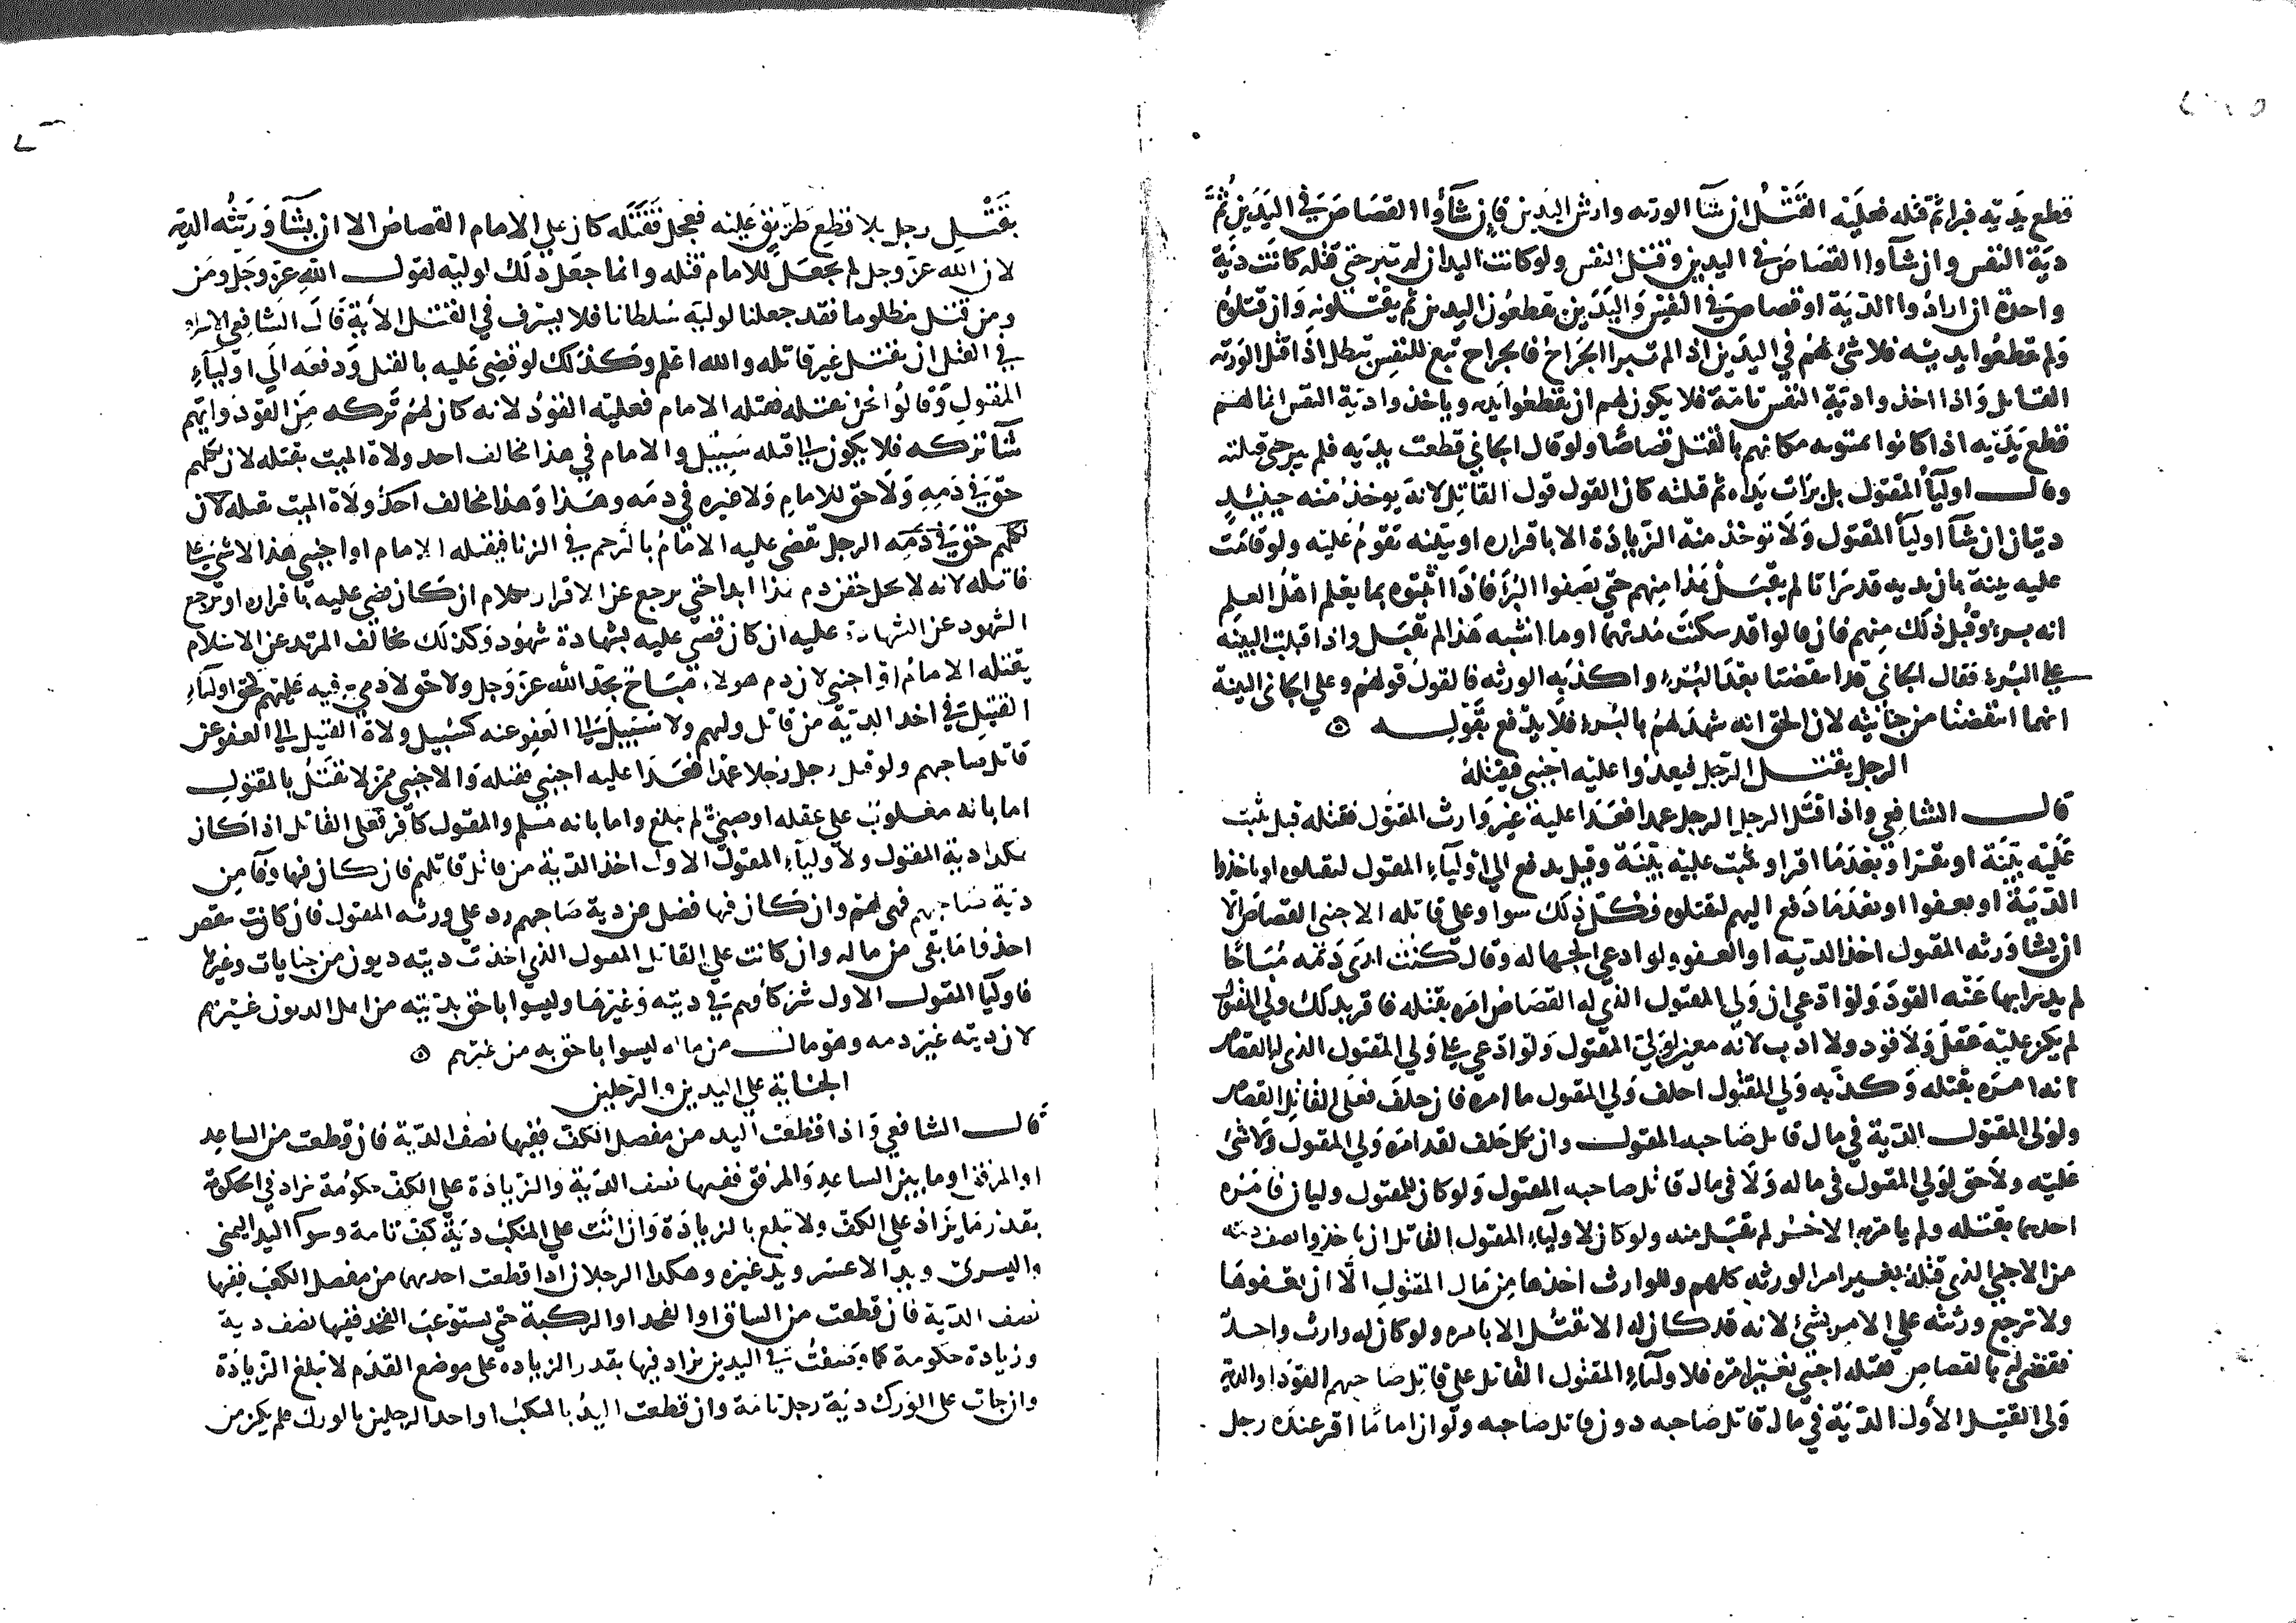 قطع يديه فبرا ثم قتله فعليه القتل ان شآ الورثه وارش اليدين فان شآؤا القصاص في اليدين ثم
دية النفس وان شآوا القصاص في اليدين وقتل النفس ولو كانت اليدان لم تبر حتي قتله كانت دية
واحدة ان ارادوا الدية او قصاص في النفس واليدين يقطعون اليدين ثم يقتلونه وان قتلوه
ولم يقطعوا يديه فلا شئ لهم في اليدين اذا لم تبرا الجراح فالجراح تبع للنفس تبطل اذا قتل الورثه
القاتل واذا اخذوا دية النفس تامة فلا يكون لهم ان يقطعوا يديه وياخذوا دية النفس انما لهم
قطع يديه اذا كانوا يميتونه مكانهم بالقتل قصاصا ولو قال الجاني قطعت يديه فلم يبر حتي قتلته
وقال اوليآ المقتول بل برات يداه ثم قتلته كان القول قول القاتل لانه يوخذ منه حينئذ
ديتان ان شآ اوليآ المقتول ولا توخذ منه الزيادة الا باقراره او بينه تقوم عليه ولو قامت
عليه بينة بان يديه قد برأتا لم يقبل هذا منهم حتي يصفوا البرأ فاذا اثبتوه بما يعلم اهل العلم
انه برء قبل ذلك منهم فان قالوا قد سكنت مدتهما او ما اشبه هذا لم تقبل واذا قبلت البينه
علي البرء فقال الجاني قد انتقضتا بعد البرء واكذبه الورثه فالقول قولهم وعلي الجاني البينة
انهما انتقضتا من جنايته لان الحق انه شهد لهم بالبرء فلا يدفع بقوله
الرجل يقتل الرجل فيعدوا عليه اجنبي فيقتله
قال الشافعي واذا قتل الرجل الرجل عمدا فعدا عليه غير وارث المقتول فقتله قبل يثبت
عليه بينة او يقر او بعد ما اقر او ثبت عليه بينة وقبل يدفع الي اوليآء المقتول ليقتلوه او ياخذوا
الدية او يعفوا او بعد ما دفع اليهم ليقتلوه فكل ذلك سوا وعلي قاتله الاجنبي القصاص الا
ان يشا ورثه المقتول اخذ الديه او العفو ولو ادعي الجهاله وقال كنت اري دمه مباحا
لم يدرا بها عنه القود ولو ادعي ان ولي المقتول الذي له القصاص امره بقتله فاقر بذلك ولي المقتول
لم يكن عليه عقل ولا قود ولا ادب لانه معين لولي المقتول ولو ادعي علي ولي المقتول الذي له القصاص
انه امره بقتله وكذبه ولي المقتول احلف ولي المقتول ما امره فان حلف فعلي القاتل القصاص
ولولي المقتول الدية في مال قاتل صاحبه المقتول وان نكل حلف لقد امره ولي المقتول ولا شئ
عليه ولا حق لولي المقتول في ماله ولا في مال قاتل صاحبه المقتول ولو كان للمقتول وليان فامره
احدهما بقتله ولم يامره الاخر لم يقتل منه ولو كان لاوليآء المقتول القاتل ان ياخذوا نصف ديته
من الاجنبي الذي قتله بغير امر الورثه كلهم وللوارث اخذها من مال المقتول الا ان يعفوها
ولا ترجع ورثته علي الامر بشئ لانه قد كان له الا يقتل الا بامره ولو كان له وارث واحد
فقضي له بالقصاص فقتله اجنبي بغير امره فلاوليآء المقتول القاتل علي قاتل صاحبهم القود او الدية
ولي القتيل الاول الدية في مال قاتل صاحبه دون قاتل صاحبه ولو ان اماما اقر عنده رجل
بقتل رجل بلا قطع طريق عليه فعجل فقتله كان علي الامام القصاص الا ان يشآ ورثته الديه
لان الله عز وجل لم يجعل للامام قتله وانما جعل ذلك لوليه لقول الله عز وجل ومن
ومن قتل مظلوما فقد جعلنا لوليه سلطانا فلا يسرف في القتل الاية قال الشافعي الاسراف
في القتل ان يقتل غير قاتله والله اعلم وكذلك لو قضي عليه بالقتل ودفعه الي اوليآء
المقتول وقالوا نحن نقتله فقتله الامام فعليه القود لانه كان لهم تركه من القود وايهم
شآ تركه فلا يكون الي قتله سبيل والامام في هذا مخالف احد ولاة الميت يقتله لان لكلهم
حق في دمه ولا حق للامام ولا غيره في دمه وهذا وهذا مخالف احد ولاة الميت يقتله لان
لكلهم حق في دمه الرجل يقضي عليه الامام بالرجم في الزنا فيقتله الامام او اجنبي هذا لا شئ علي
قاتله لانه لا يحل حقن دم هذا ابدا حتي يرجع عن الاقرار بكلام ان كان قضي عليه باقراره او ترجع
الشهود عن الشهادة عليه ان كان قضي عليه بشهادة شهود وكذلك يخالف المرتد عن الاسلام
يقتله الامام او اجنبي لان دم هولاء مباح بحد الله عز وجل ولا حق لادمي فيه عليهم كحق اوليآء
القتيل في اخذ الدية من قاتل وليهم ولا سبيل الي العفو عنه كسبيل ولاة القتيل الي العفو عن
قاتل صاحبهم ولو قتل رجل رجلا عمدا فعدا عليه اجنبي فقتله والاجنبي ممن لا يقتل بالمقتول
اما بانه مغلوب علي عقله او صبي لم يبلغ واما بانه مسلم والمقتول كافر فعلي القاتل اذا كان
هكذا دية المقتول ولاوليآء المقتول الاول اخذ الدية من قاتل قاتلهم فان كان فيها وفآ من
دية صاحبهم فهي لهم وان كان فيها فضل عن دية صاحبهم رد علي ورثه المقتول فان كانت تنقص
اخذوا ما بقي من ماله وان كانت علي القاتل المقتول الذي اخذت ديته ديون من جنايات وغيرها
فاوليآ المقتول الاول شركآؤهم في ديته وغيرها وليسوا باحق بديته من اهل الديون غيرهم
لان ديته غير دمه وهو مال من ماله ليسوا باحق به من غيرهم
الجناية علي اليدين والرجلين
قال الشافعي واذا قطعت اليد من مفصل الكف ففيها نصف الدية فان قطعت من الساعد
او المرفق او ما بين الساعد والمرفق ففيها نصف الدية والزيادة علي الكف حكومة تزاد في الحكومة
بقدر ما يزاد علي الكف ولا تبلغ بالزيادة وان اتت علي المنكب دية كف تامة وسوآ اليد اليمني
واليسري ويد الاعسر ويد غيره وهكذا الرجلان اذا قطعت احديهما من مفصل الكعب ففيها
نصف الدية فان قطعت من الساق او الفخذ او الركبة حتي يستوعب الفخذ ففيها نصف دية
وزيادة حكومة كما وصفت في اليدين يزاد فيها بقدر الزياده علي موضع القدم لا تبلغ الزيادة
وان جات علي الورك دية رجل تامة وان قطعت اليد بالمنكب او احد الرجلين بالورك فلم يكن من